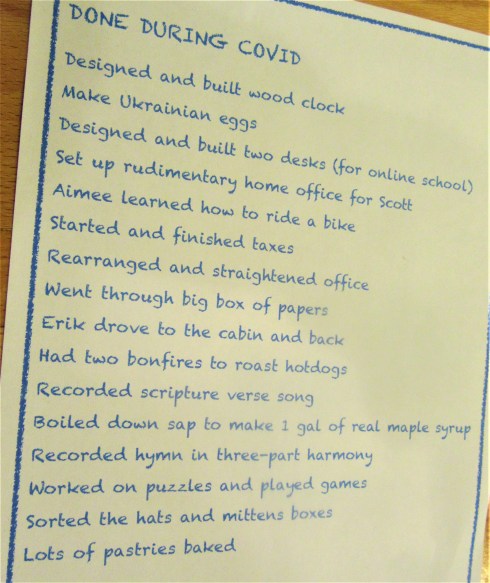 DONE DURING COVID
Designed and built wood clock
Make Ukrainian eggs
Designed and built two desks (for online school)
Set up rudimentary home office for Scott
Aimee learned how to ride a bike
Started and finished taxes
Rearranged and straightened office
Went through big box of papers
Erik drove to the cabin and back
Had two bonfires to roast hotdogs
Recorded scripture verse song
Boiled down sap to make 1 gal of real maple syrup
Recorded hymn in three-part harmony
Worked on puzzles and played games
Sorted the hats and mittens boxes
Lots of pastries baked